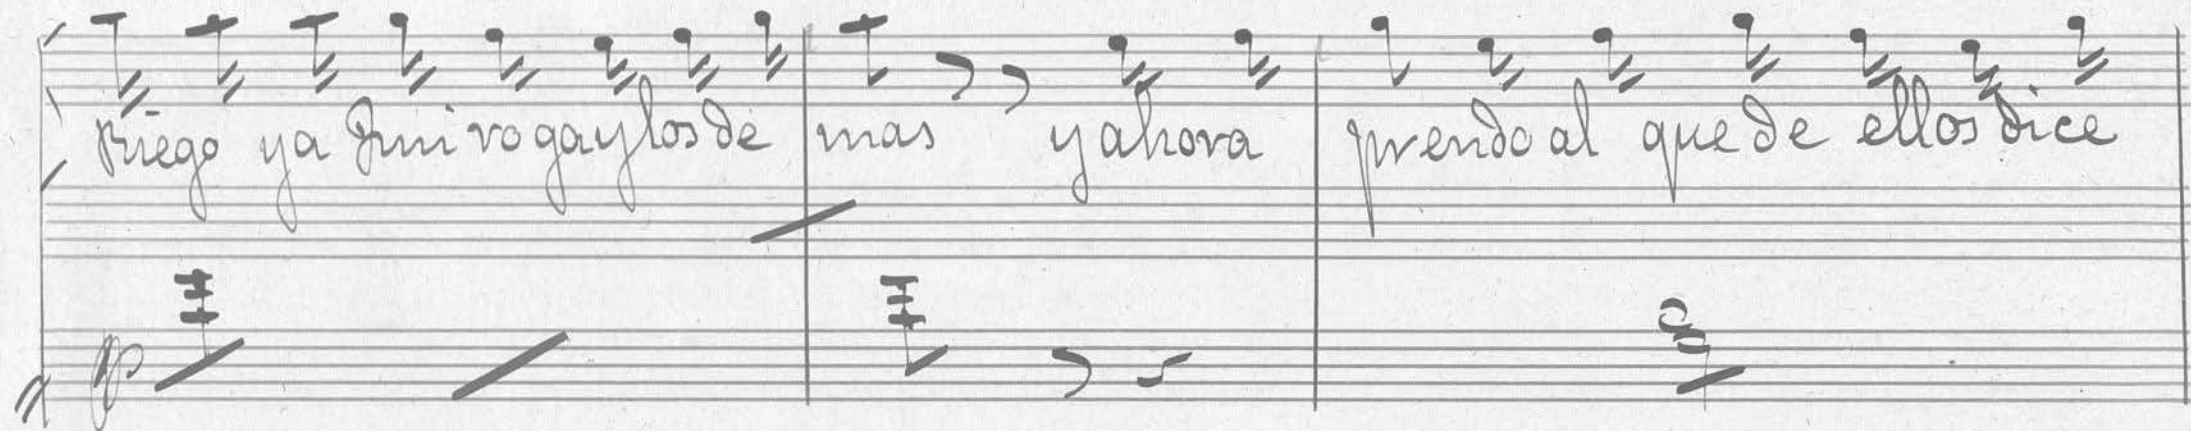 Riego ya Quirogaylosde mas yahora prendoal quede ellosdice
p